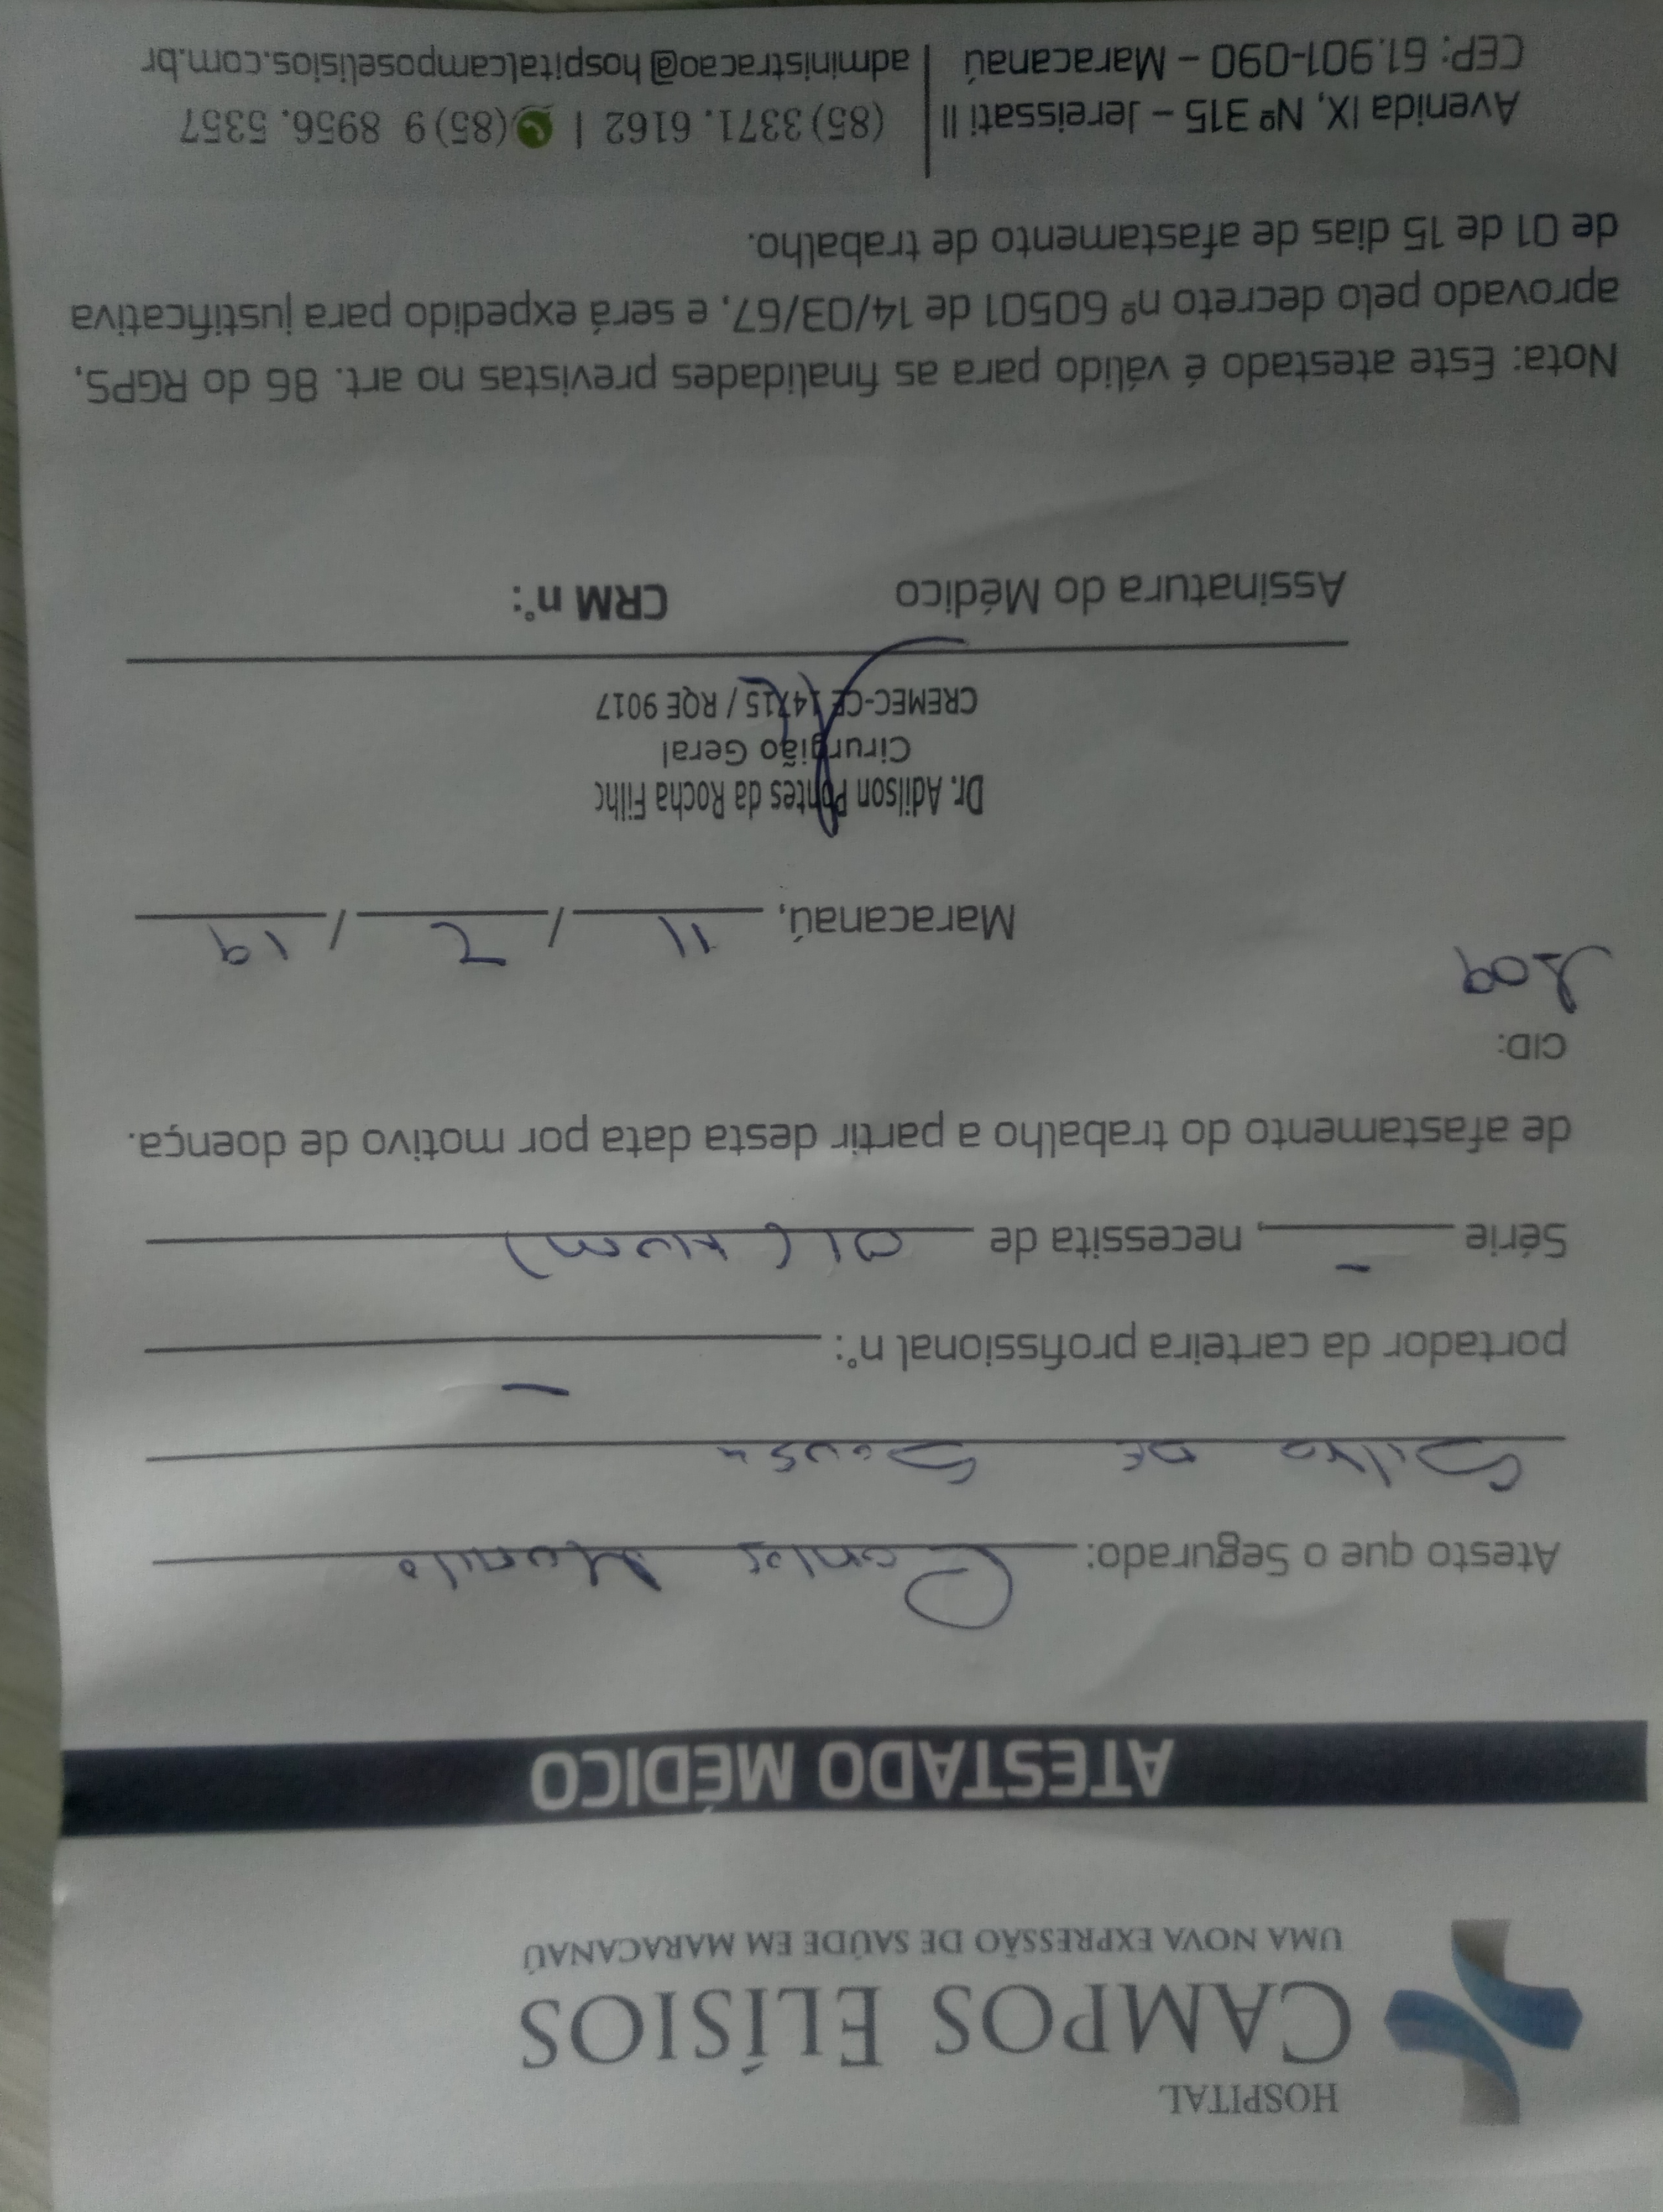 HOSPITAL
CAMPOS ELÍSIOS
UMA NOVA EXPRESSÃO DE SAÚDE EM MARACANAÚ
ATESTADO MÉDICO
Atesto que o Segurado: Carlos
Silva DE Sousa
portador da carteira profissional n°: -
Série -, necessita de 01 (Hum)
de afastamento do trabalho a partir desta data por motivo de doença.
CID:
Maracanaú, 11 / 2 / 19
Dr. Adilson Pontes da Rocha Filho
Cirurgião Geral
CREMEC-CE / RQE 9017
Assinatura do Médico CRM n°:
Nota: Este atestado é válido para as finalidades previstas no art. 86 do RGPS,
aprovado pelo decreto nº 60501 de 14/03/67, e será expedido para justificativa
de 01 de 15 dias de afastamento de trabalho.
Avenida IX, Nº 315 – Jereissati II | (85) 3371. 6162 | (85) 9 8956. 5357
CEP: 61.901-090 – Maracanaú | administracao@hospitalcamposelisios.com.br